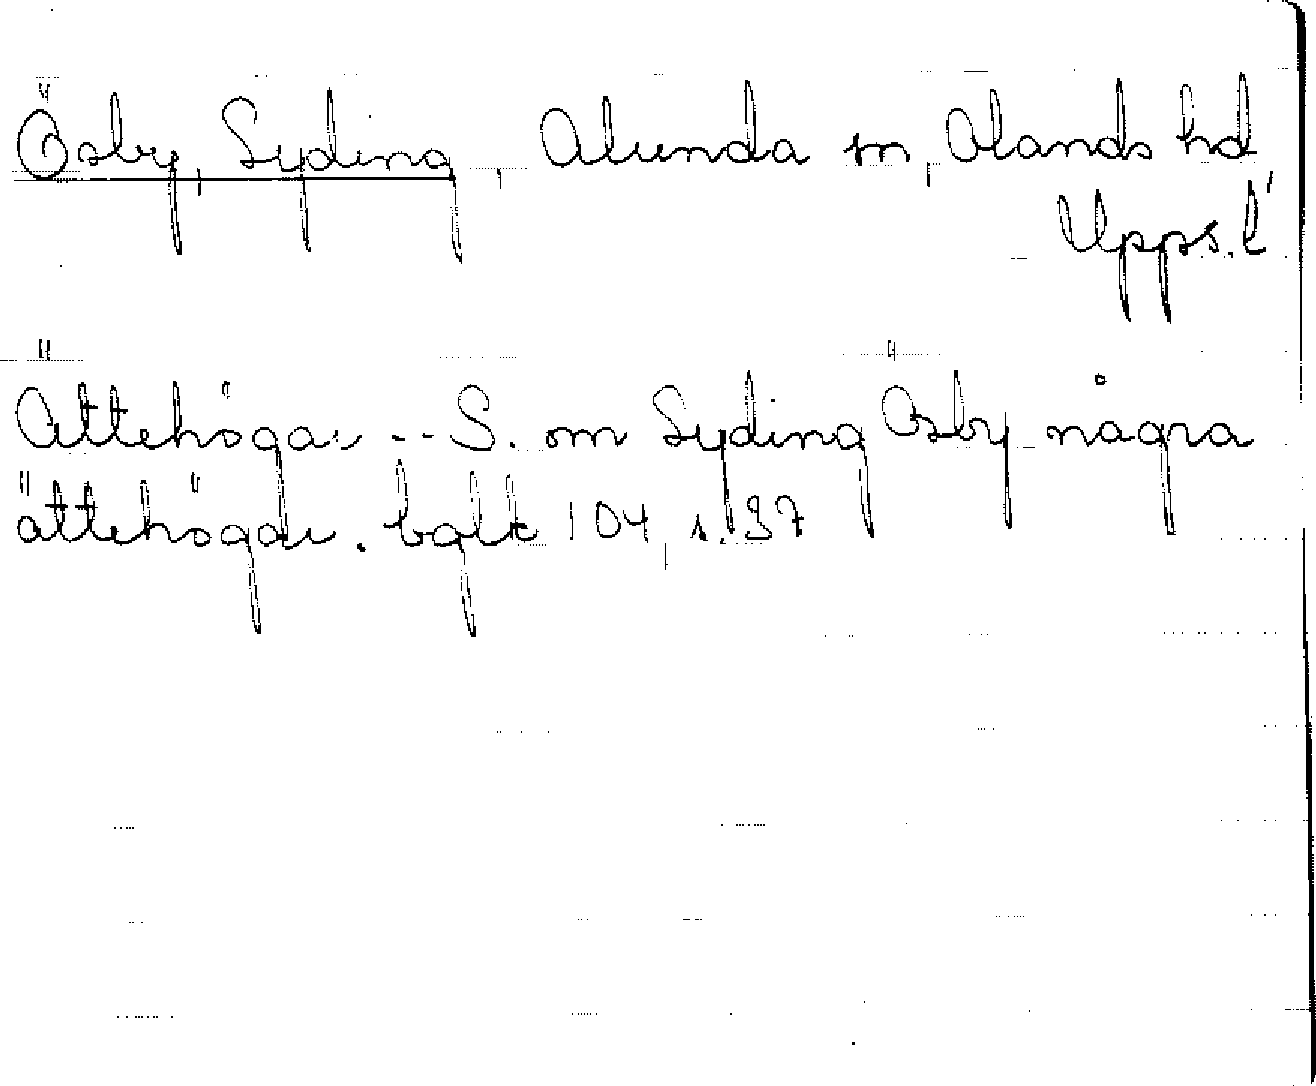 Ösby, Syding, Alunda sn, Olands hd
Upps. l
Ättehögar -- S. om Syding Ösby några
ättehögar. bqlk 104, s. 37